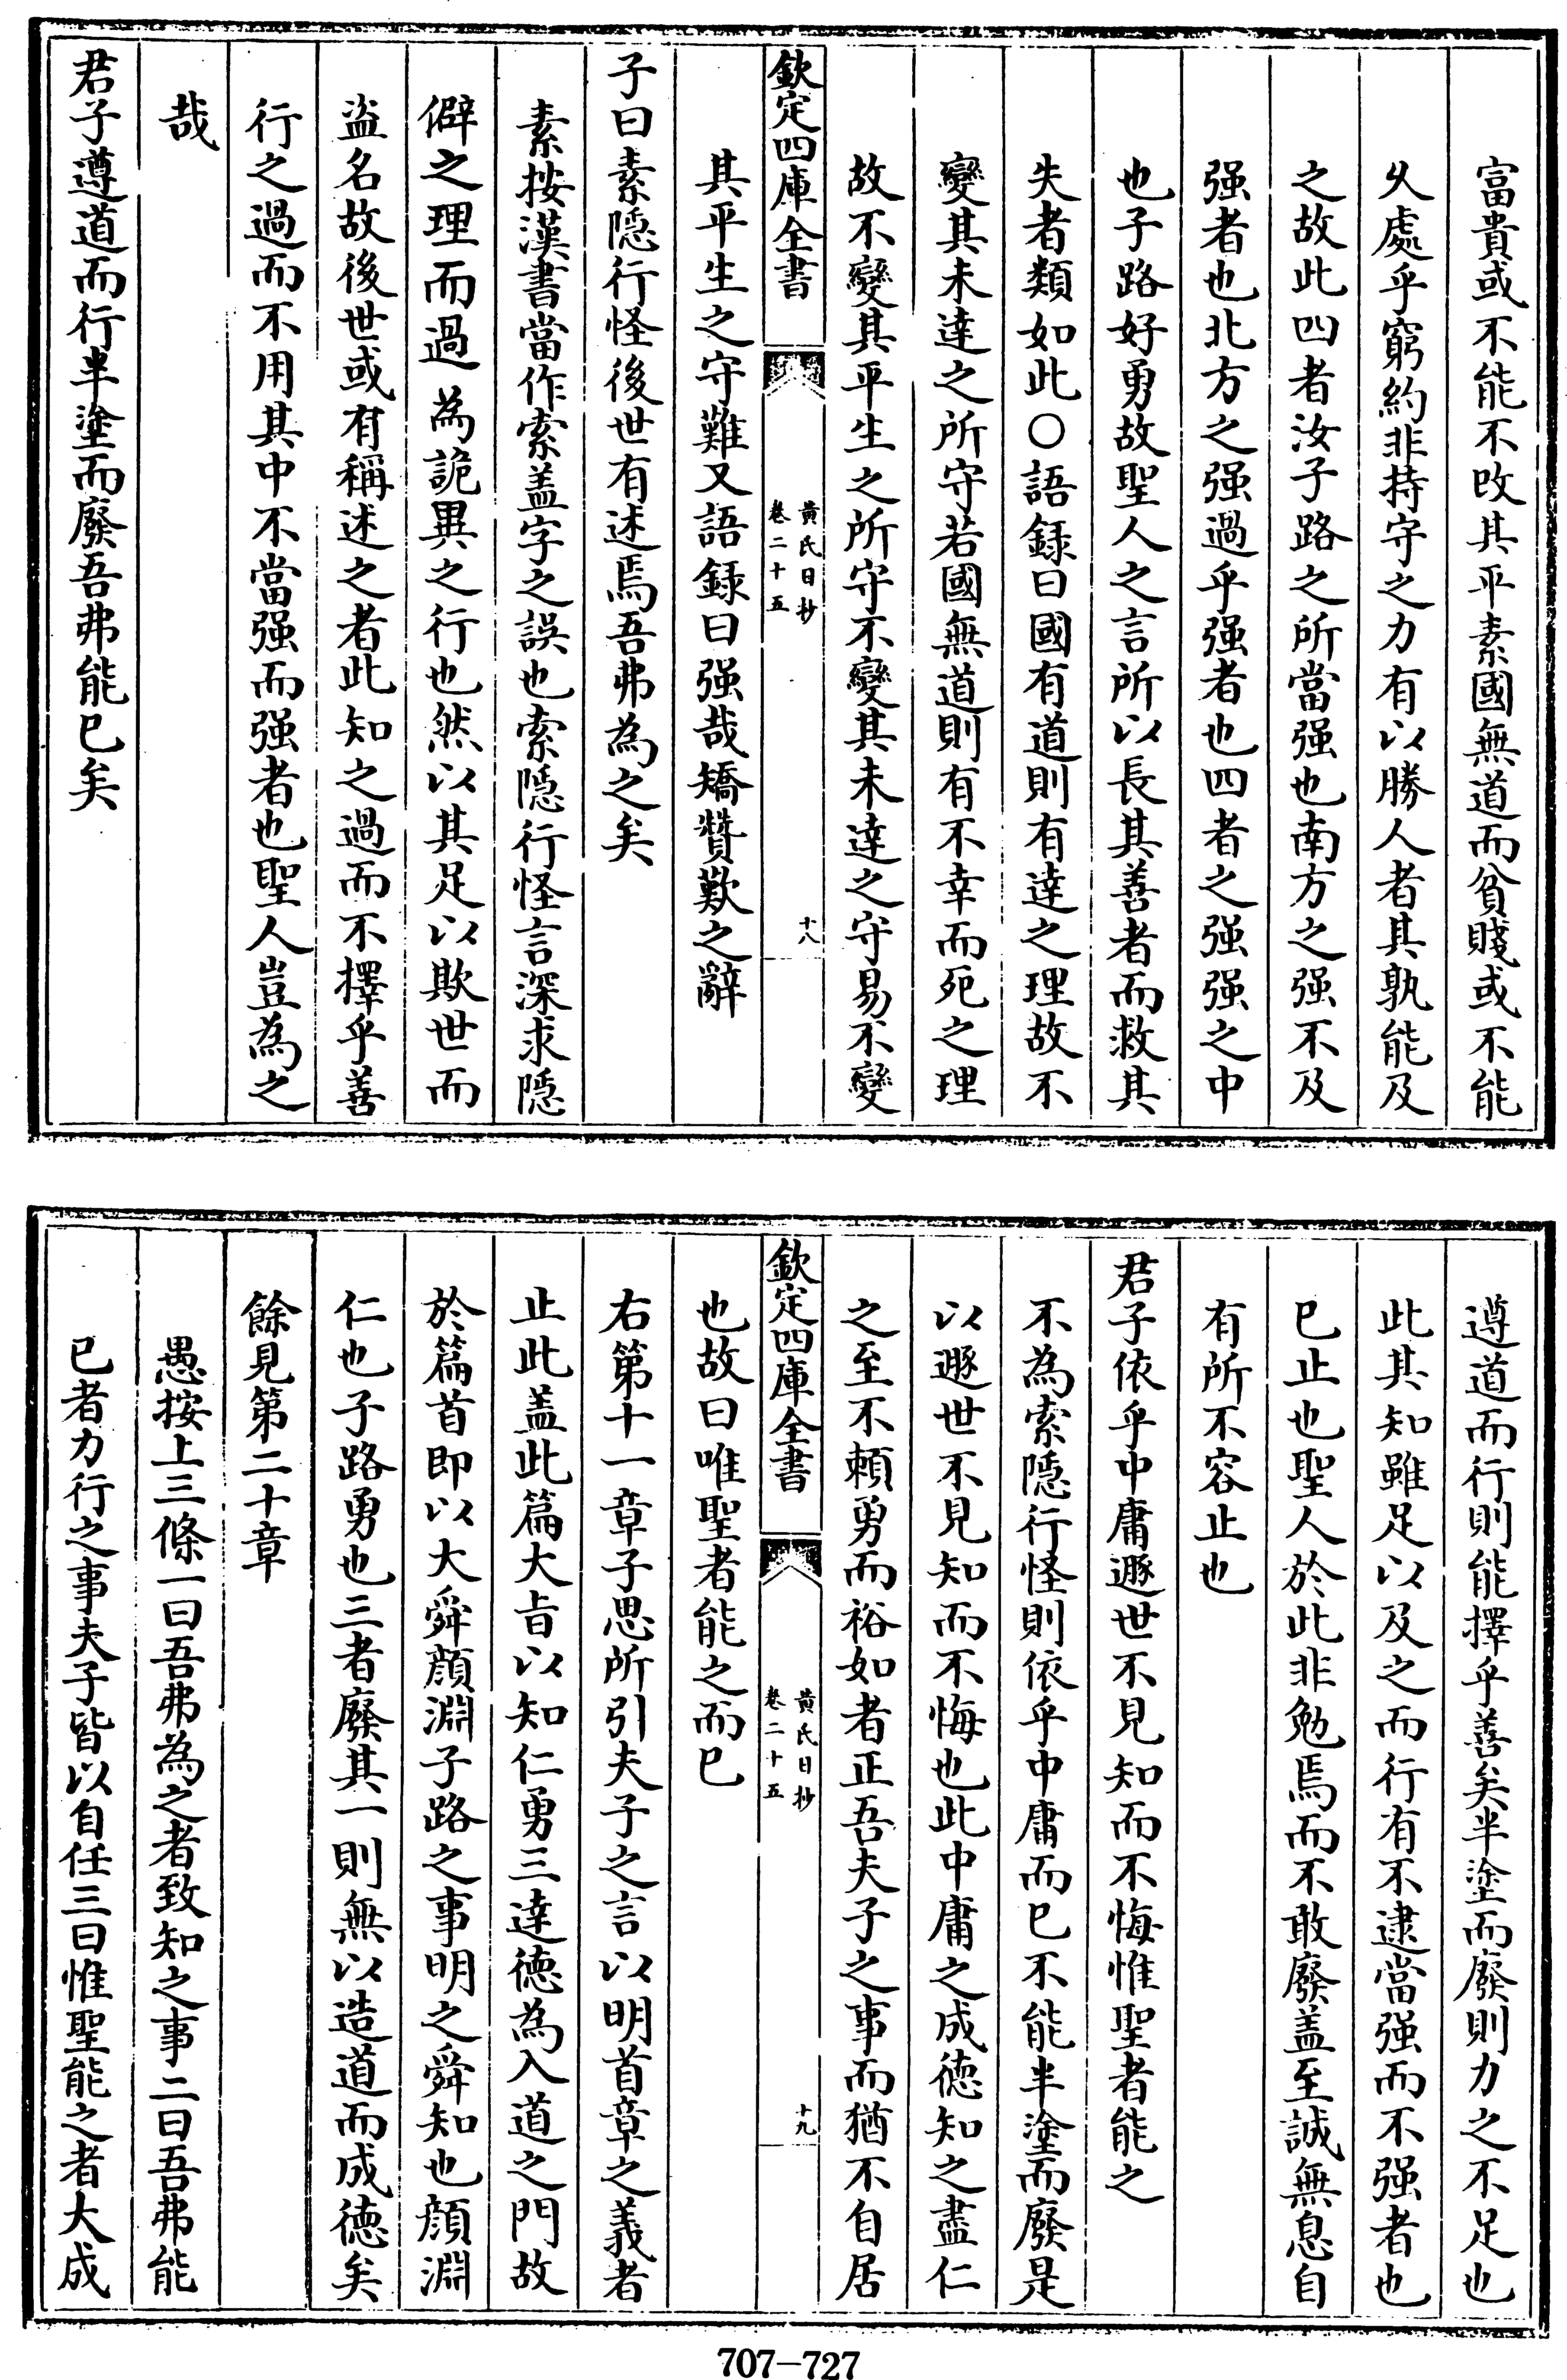 富貴或不能不改其平素國無道而貧賤或不能
乆處乎窮約非持守之力有以勝人者其孰能及
之故此四者汝子路之所當强也南方之强不及
强者也北方之强過乎强者也四者之强强之中
也子路好勇故聖人之言所以長其善者而救其
失者類如此○語録曰國有道則有達之理故不
變其未達之所守若國無道則有不幸而死之理
故不變其平生之所守不變其未達之守易不變
欽定四庫全書
黄氏日抄
卷二十五
十八
其平生之守難又語録曰强哉矯贊歎之辭
子曰素隠行怪後世有述焉吾弗為之矣
素按漢書當作索盖字之誤也索隠行怪言深求隠
僻之理而過為詭異之行也然以其足以欺世而
盜名故後世或有稱述之者此知之過而不擇乎善
行之過而不用其中不當强而强者也聖人豈為之
哉
君子遵道而行半塗而廢吾弗能已矣
遵道而行則能擇乎善矣半塗而廢則力之不足也
此其知雖足以及之而行有不逮當强而不强者也
已止也聖人於此非勉焉而不敢廢盖至誠無息自
有所不容止也
君子依乎中庸遯世不見知而不悔惟聖者能之
不為索隠行怪則依乎中庸而已不能半塗而廢是
以遯世不見知而不悔也此中庸之成徳知之盡仁
之至不頼勇而裕如者正吾夫子之事而猶不自居
欽定四庫全書
黄氏日抄
卷二十五
十九
也故曰唯聖者能之而已
右第十一章子思所引夫子之言以明首章之義者
止此盖此篇大㫖以知仁勇三達徳為入道之門故
於篇首即以大舜顔淵子路之事明之舜知也顔淵
仁也子路勇也三者廢其一則無以造道而成徳矣
餘見第二十章
愚按上三條一曰吾弗為之者致知之事二曰吾弗能
已者力行之事夫子皆以自任三曰惟聖能之者大成
707-727